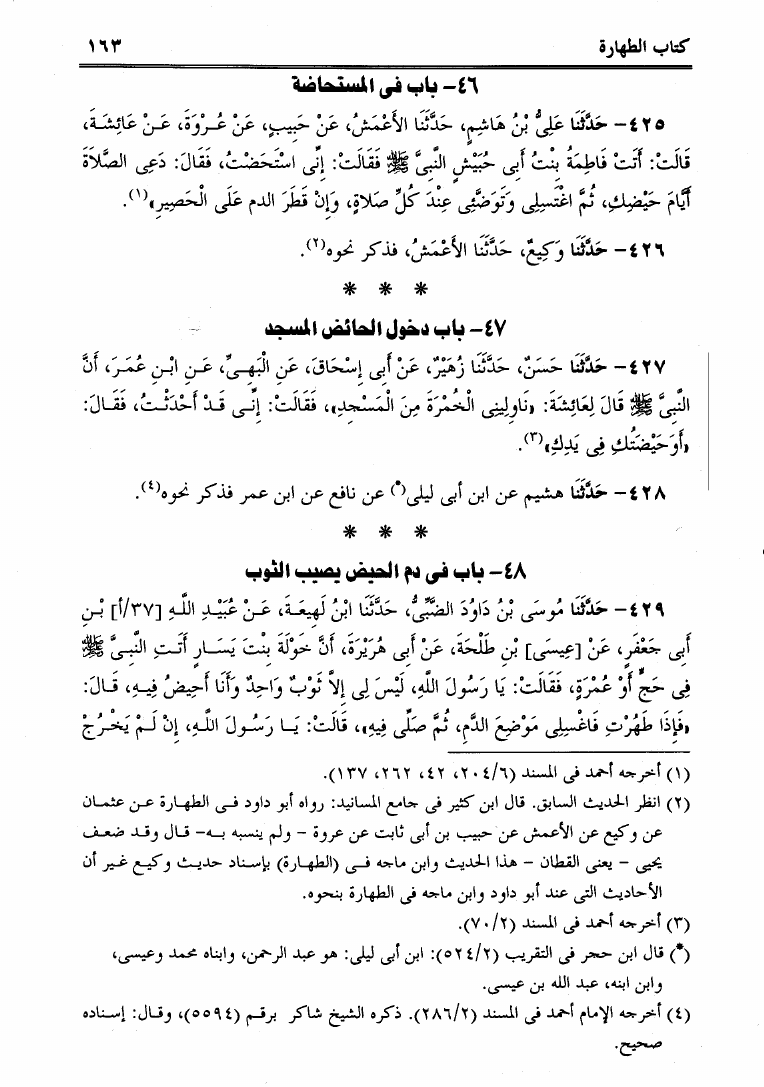 كتاب الطهارة ١٦٣
٤٦- باب فى المستحاضة
٤٢٥- حَدَّثَنَا عَلِىُّ بْنُ هَاشِمٍ، حَدَّثَنَا الأَعْمَشُ، عَنْ حَبِيبٍ، عَنْ عُـرْوَةَ، عَـنْ عَائِشَـةَ،
قَالَتْ: أَتَتْ فَاطِمَةُ بِنْتُ أَبِى حُبَيْشٍ النَّبِىَّ ﷺ فَقَالَتْ: إِنِّى اسْتَحَضْتُ، فَقَالَ: دَعِى الصَّلاَةَ
أَيَّامَ حَيْضِكِ، ثُمَّ اغْتَسِلِى وَتَوَضَّئِى عِنْدَ كُلِّ صَلاَةٍ، وَإِنْ قَطَرَ الدم عَلَى الْحَصِيرِ»(١).
٤٢٦- حَدَّثَنَا وَكِيعٌ، حَدَّثَنَا الأَعْمَشُ، فذكر نحوه(٢).
* * *
٤٧- باب دخول الحائض المسجد
٤٢٧- حَدَّثَنَا حَسَنٌ، حَدَّثَنَا زُهَيْرٌ، عَنْ أَبِى إِسْحَاقَ، عَنِ الْبَهِىِّ، عَـنِ ابْـنِ عُمَـرَ، أَنَّ
النَّبِىَّ ﷺ قَالَ لِعَائِشَةَ: «نَاوِلِينِى الْخُمْرَةَ مِنَ الْمَسْجِدِ»، فَقَالَتْ: إِنِّـى قَـدْ أَحْدَثْـتُ، فَقَـالَ:
«أَوَحَيْضَتُكِ فِى يَدِكِ»(٣).
٤٢٨- حَدَّثَنَا هشيم عن ابن أبى ليلى(*) عن نافع عن ابن عمر فذكر نحوه(٤).
* * *
٤٨- باب فى دم الحيض يصيب الثوب
٤٢٩- حَدَّثَنَا مُوسَى بْنُ دَاوُدَ الضَّبِّىُّ، حَدَّثَنَا ابْنُ لَهِيعَـةَ، عَـنْ عُبَيْـدِ اللَّـهِ [٣٧/أ] بْـنِ
أَبِى جَعْفَرٍ، عَنْ [عِيسَى] بْنِ طَلْحَةَ، عَنْ أَبِى هُرَيْرَةَ، أَنَّ خَوْلَةَ بِنْتَ يَسَـارٍ أَتَـتِ النَّبِـىَّ ﷺ
فِى حَجٍّ أَوْ عُمْرَةٍ، فَقَالَتْ: يَا رَسُولَ اللَّهِ، لَيْسَ لِى إِلاَّ ثَوْبٌ وَاحِدٌ وَأَنَا أَحِيضُ فِيـهِ، قَـالَ:
«فَإِذَا طَهُرْتِ فَاغْسِلِى مَوْضِعَ الدَّمِ، ثُمَّ صَلِّى فِيهِ»، قَالَتْ: يَـا رَسُـولَ اللَّـهِ، إِنْ لَـمْ يَخْـرُجْ
(١) أخرجه أحمد فى المسند (٢٠٤/٦، ٤٢، ٢٦٢، ١٣٧).
(٢) انظر الحديث السابق. قال ابن كثير فى جامع المسانيد: رواه أبو داود فـى الطهارة عـن عثمـان
عن وكيع عن الأعمش عن حبيب بن أبى ثابت عن عروة - ولم ينسبه بـه- قـال وقـد ضعـف
يحيى - يعنى القطان - هذا الحديث وابن ماجه فـى (الطهـارة) بإسـناد حديـث وكيـع غـير أن
الأحاديث التى عند أبو داود وابن ماجه فى الطهارة بنحوه.
(٣) أخرجه أحمد فى المسند (٧٠/٢).
(*) قال ابن حجر فى التقريب (٥٢٤/٢): ابن أبى ليلى: هو عبد الرحمن، وابناه محمد وعيسى،
وابن ابنه، عبد الله بن عيسى.
(٤) أخرجه الإمام أحمد فى المسند (٢٨٦/٢). ذكره الشيخ شاكر برقـم (٥٥٩٤)، وقـال: إسـناده
صحيح.